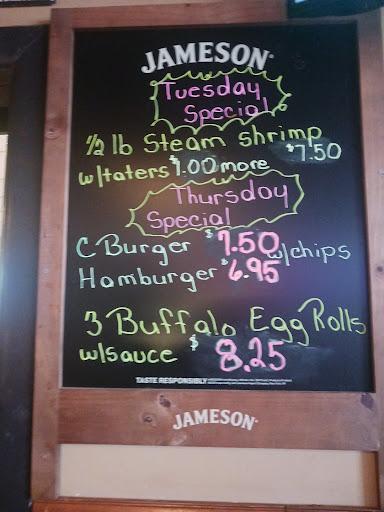 JAMESON
Tuesday
Special
1/2 lb Steam shrimp
$7.50
w/taters $1.00 more
Thursday
Special
C Burger $7.50 w/chips
Hamburger $6.95
3 Buffalo Egg Rolls
w/sauce $8.25
TASTE RESPONSIBLY
JAMESON